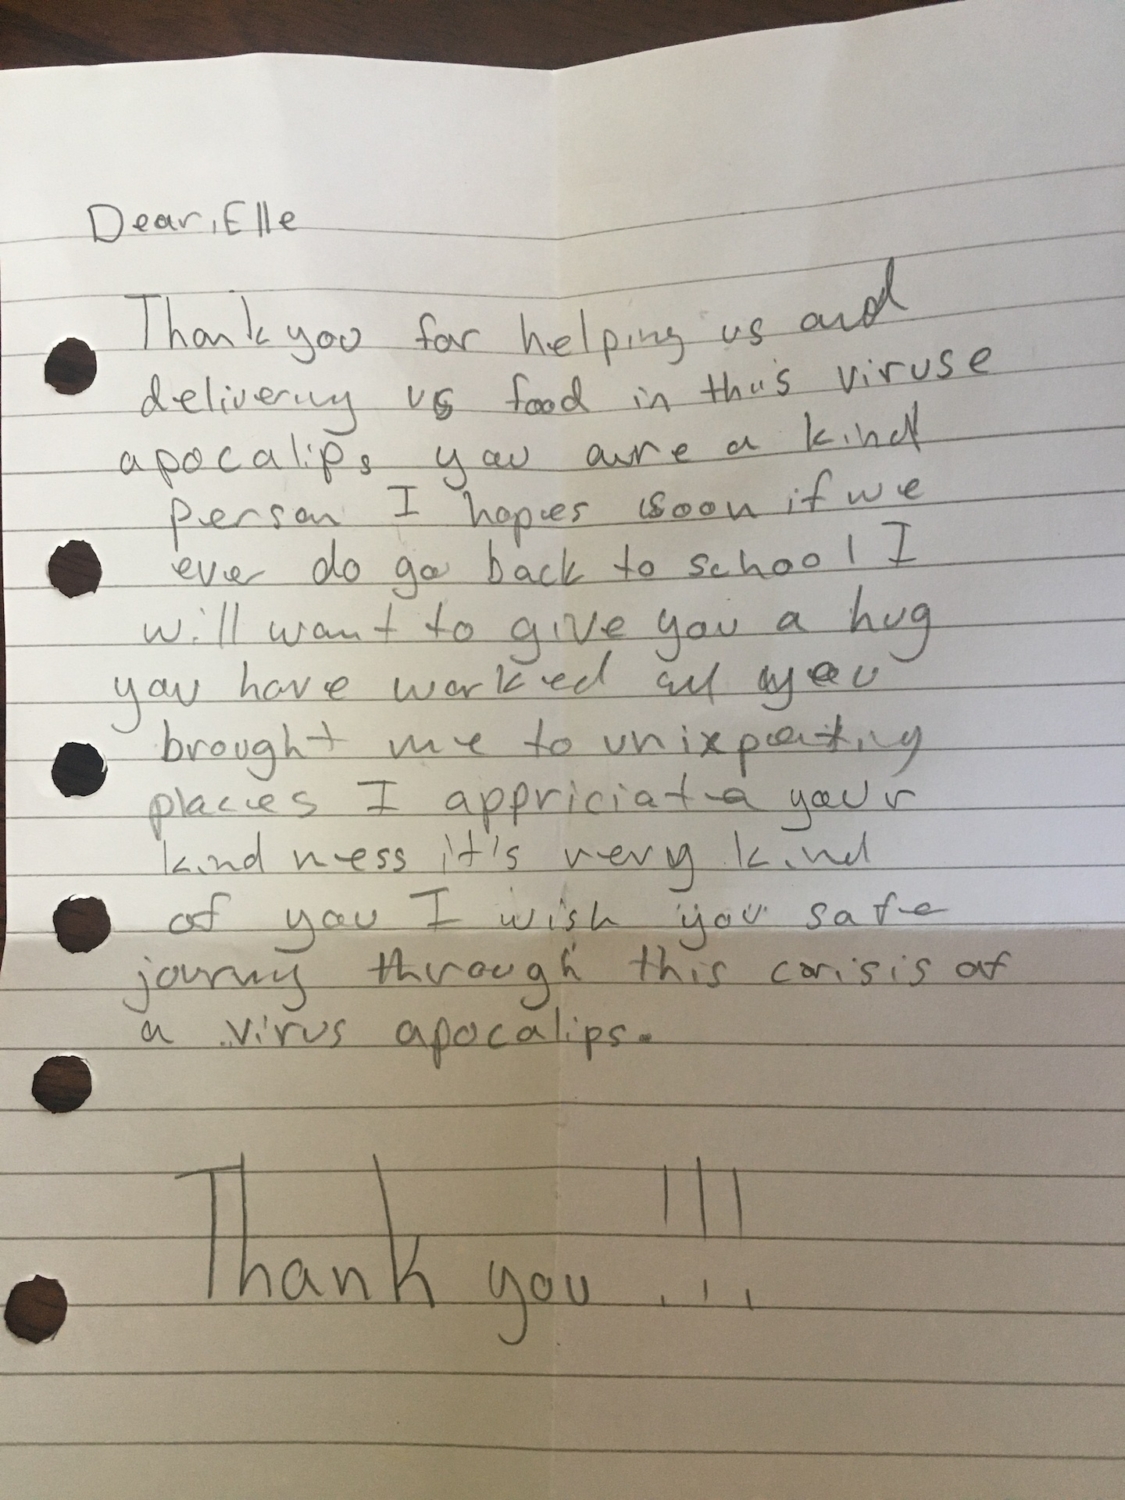 Dear, Elle
Thank you for helping us and
delivering us food in this viruse
apocalips you are a kind
person I hopes soon if we
ever do go back to school I
will want to give you a hug
you have worked and you
brought me to unixpecting
places I appriciate your
kind ness it's very kind
of you I wish you safe
journy through this crisis of
a virus apocalips.
Thank you !!!